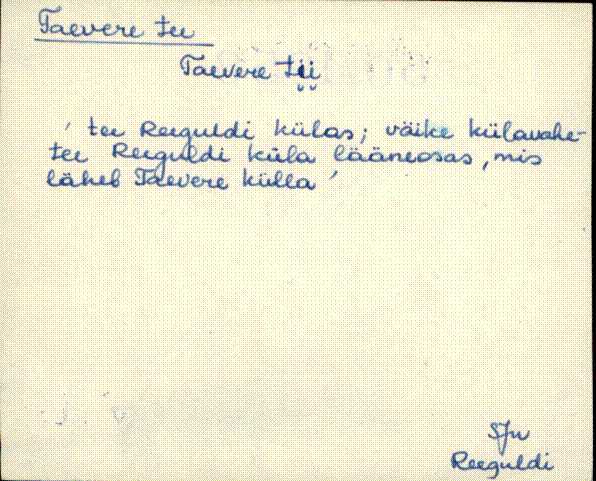 Taevere tee
Taevere tii̯i̯
' tee Reeguldi külas; väike külavahe-
tee Reeguldi küla lääneosas, mis
läheb Taevere külla '
SJn
Reeguldi